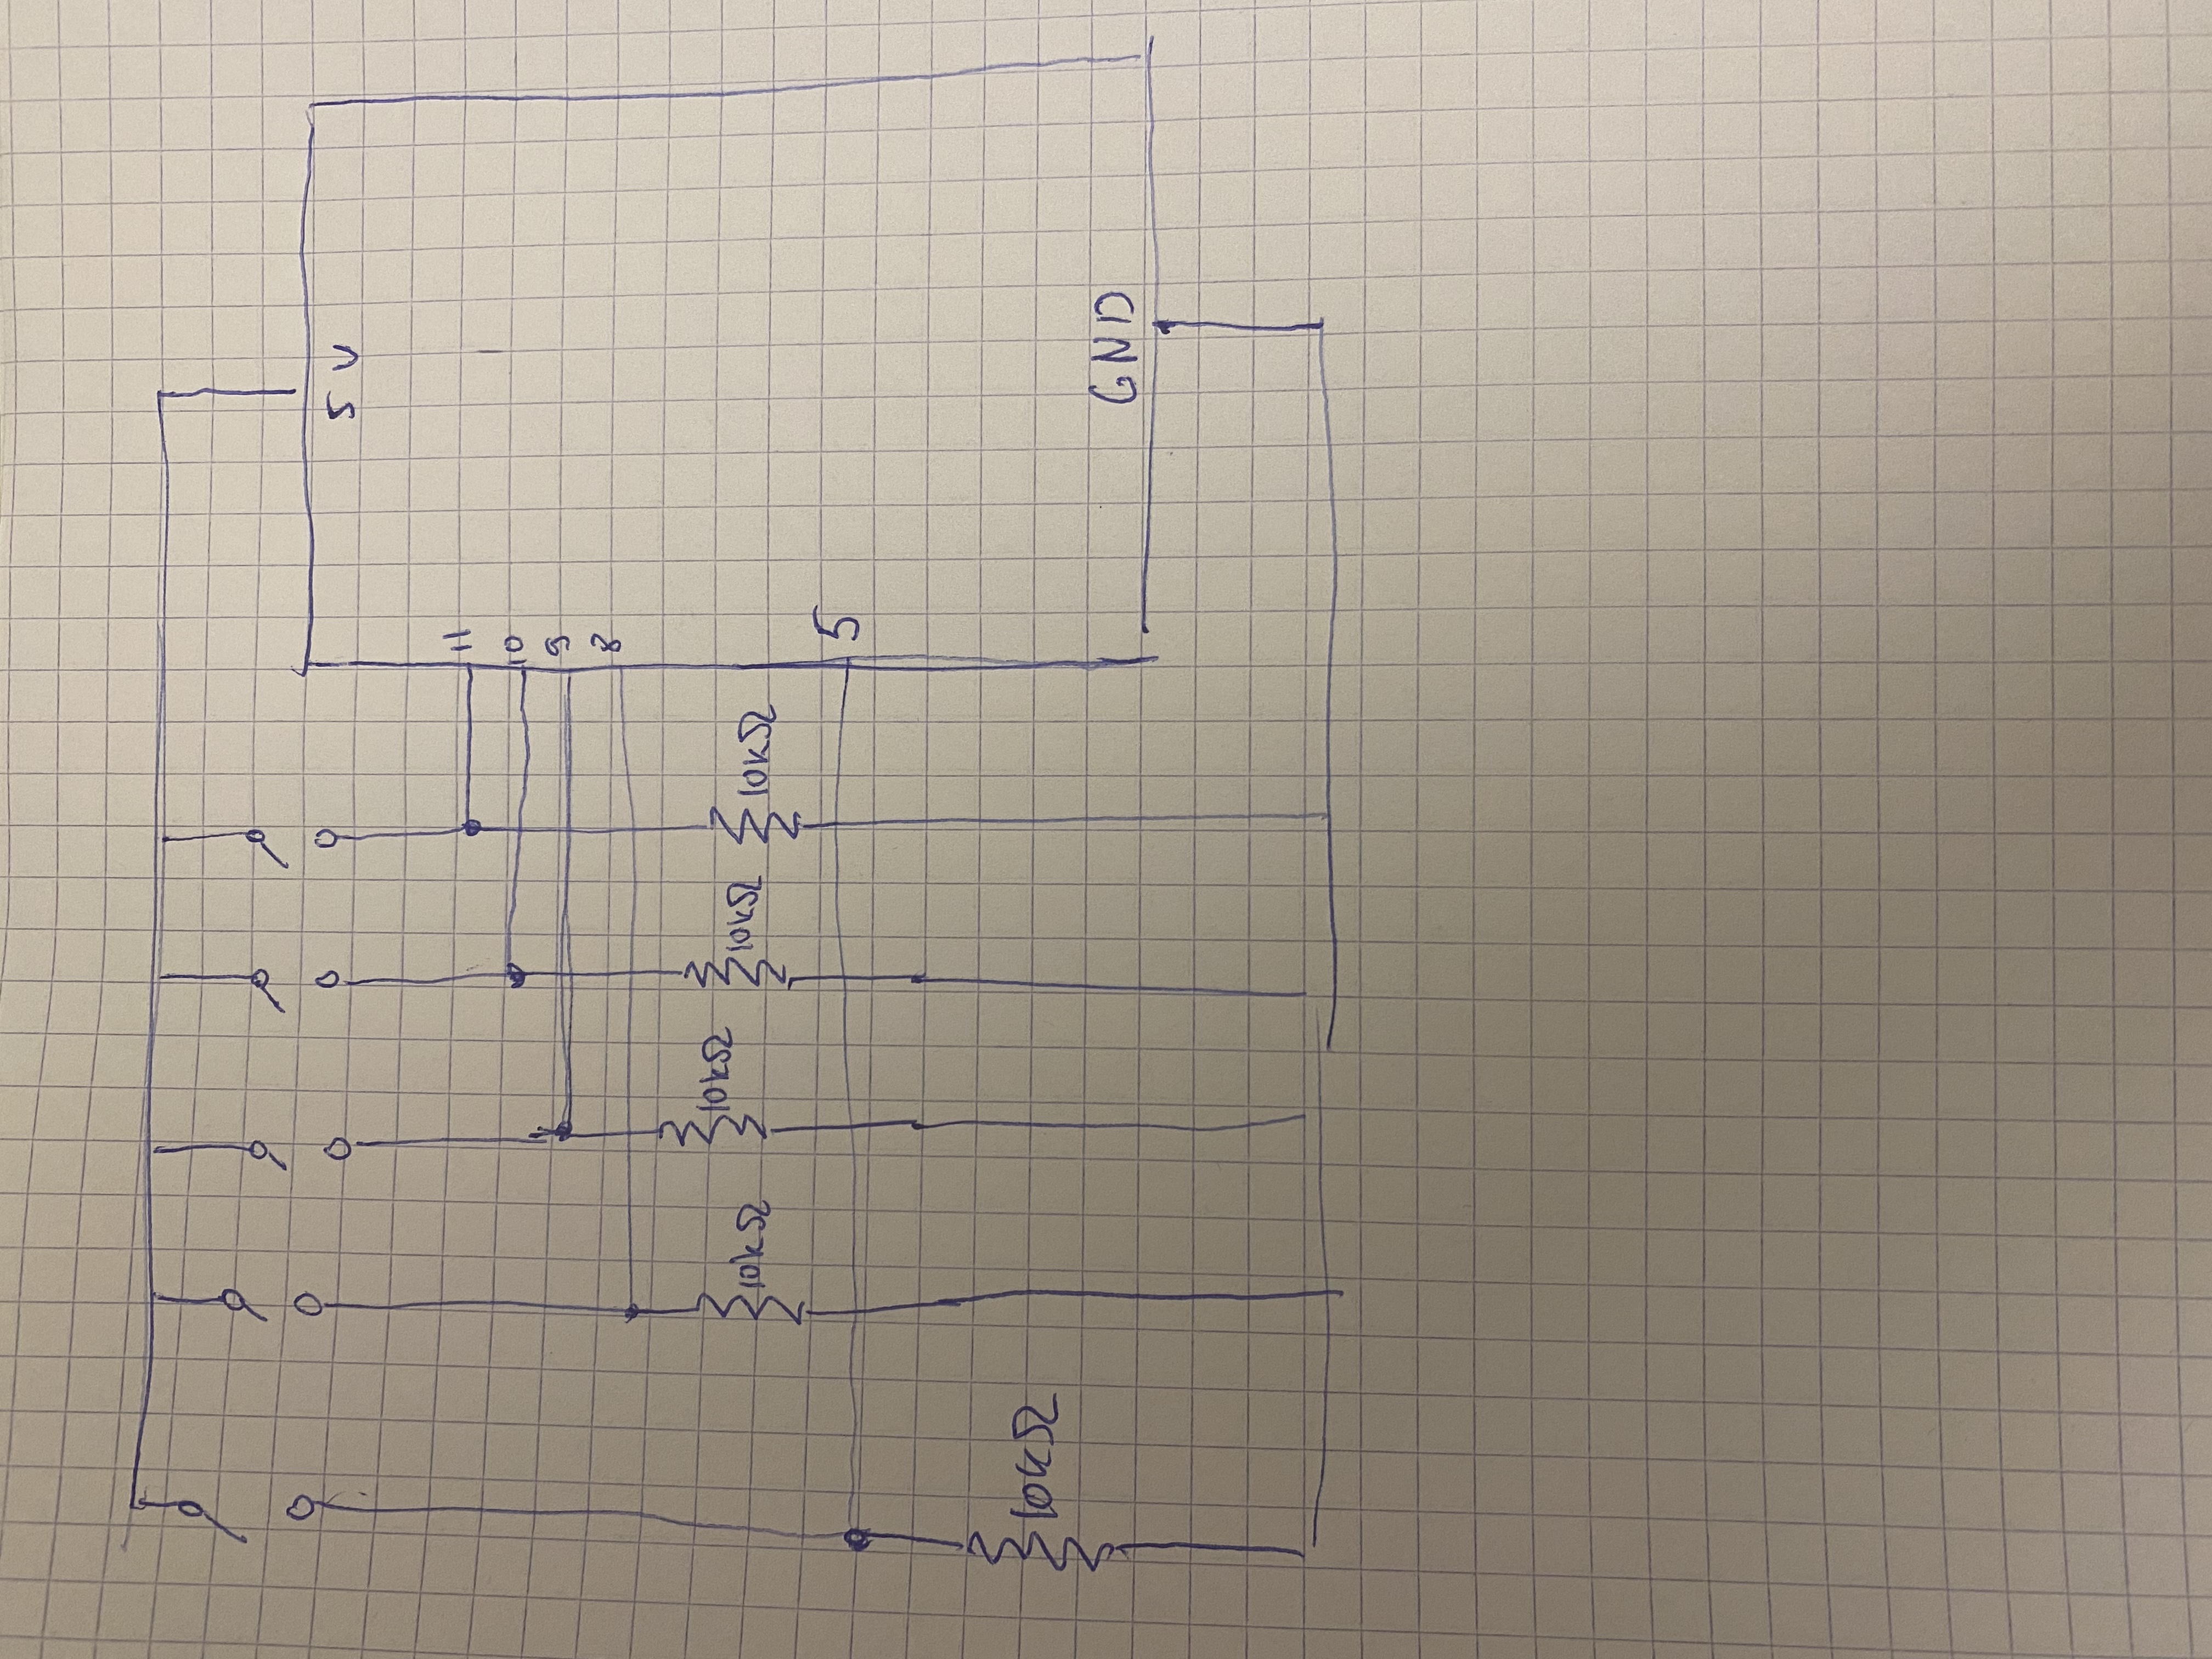 5 V
11
10
9
8
10kΩ
10kΩ
10kΩ
10kΩ
5
10kΩ
GND